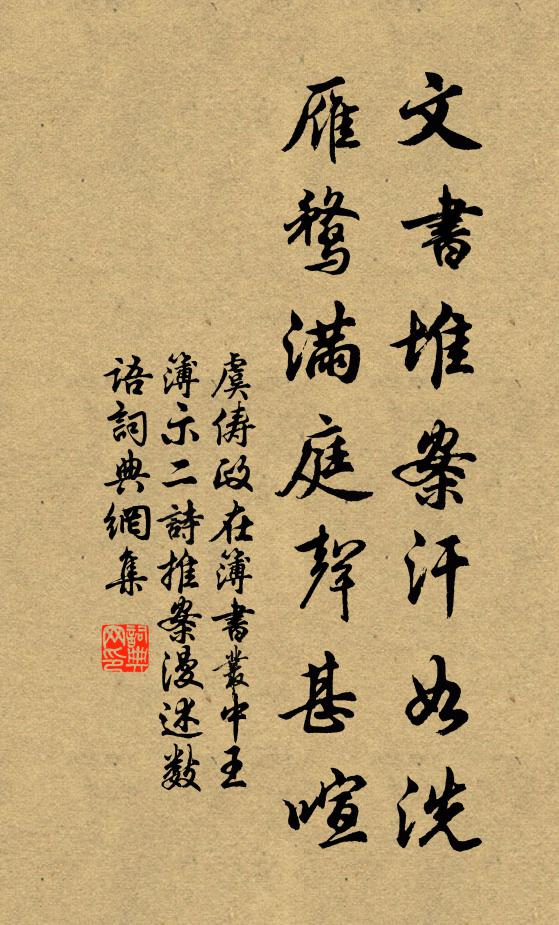 文書堆案汗如洗
雁鶩滿庭聲甚喧
虞儔政在簿書叢中王
簿示二詩推案漫述數
語詞典網集
詞典
网印